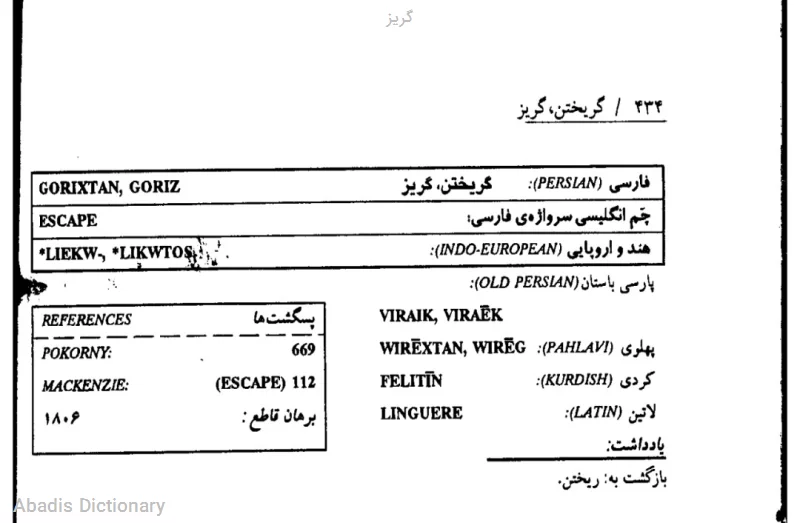 گریز
۴۳۴ / گریختن، گریز
فارسی (PERSIAN): گریختن، گریز GORIXTAN, GORIZ
چم انگلیسی سرواژه‌ی فارسی: ESCAPE
هند و اروپایی (INDO-EUROPEAN): *LIEKW-, *LIKWTOS
پارسی باستان (OLD PERSIAN):
VIRAIK, VIRAĒK
پهلوی (PAHLAVI): WIRĒXTAN, WIRĒG
کردی (KURDISH): FELITĪN
لاتین (LATIN): LINGUERE
یادداشت:
بازگشت به: ریختن.
پسگشت‌ها REFERENCES
POKORNY: 669
MACKENZIE: (ESCAPE) 112
برهان قاطع: ۱۸۰۶
Abadis Dictionary